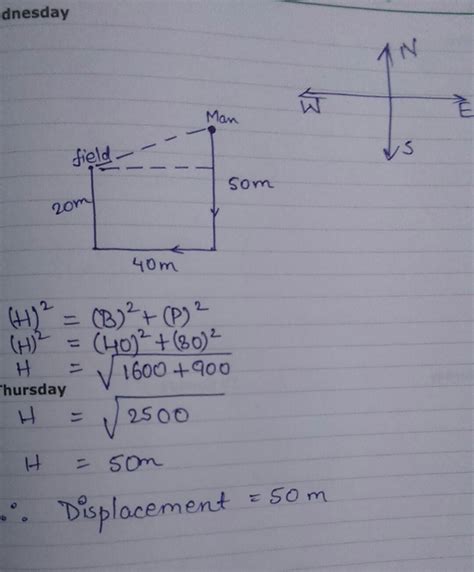 dnesday
N
W
E
S
Man
field
50m
20m
40m
(H)² = (B)² + (P)²
(H)² = (40)² + (30)²
H = √1600 + 900
Thursday
H = √2500
H = 50m
∴ Displacement = 50 m